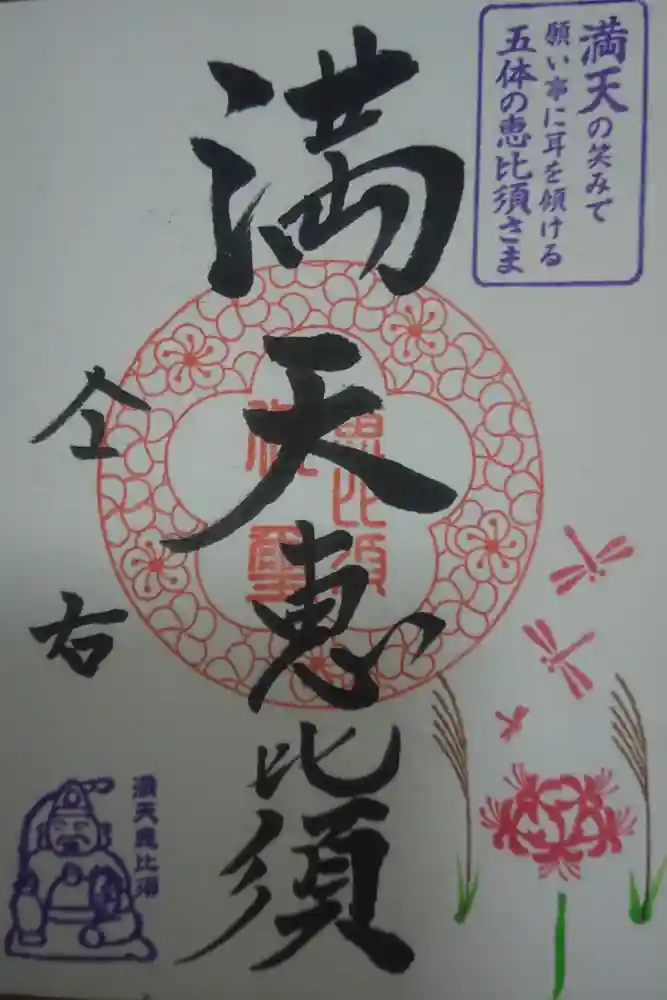 満天の笑みで
願い事に耳を傾ける
五体の恵比須さま
満天恵比須
恵比須
仝
右
満天恵比須